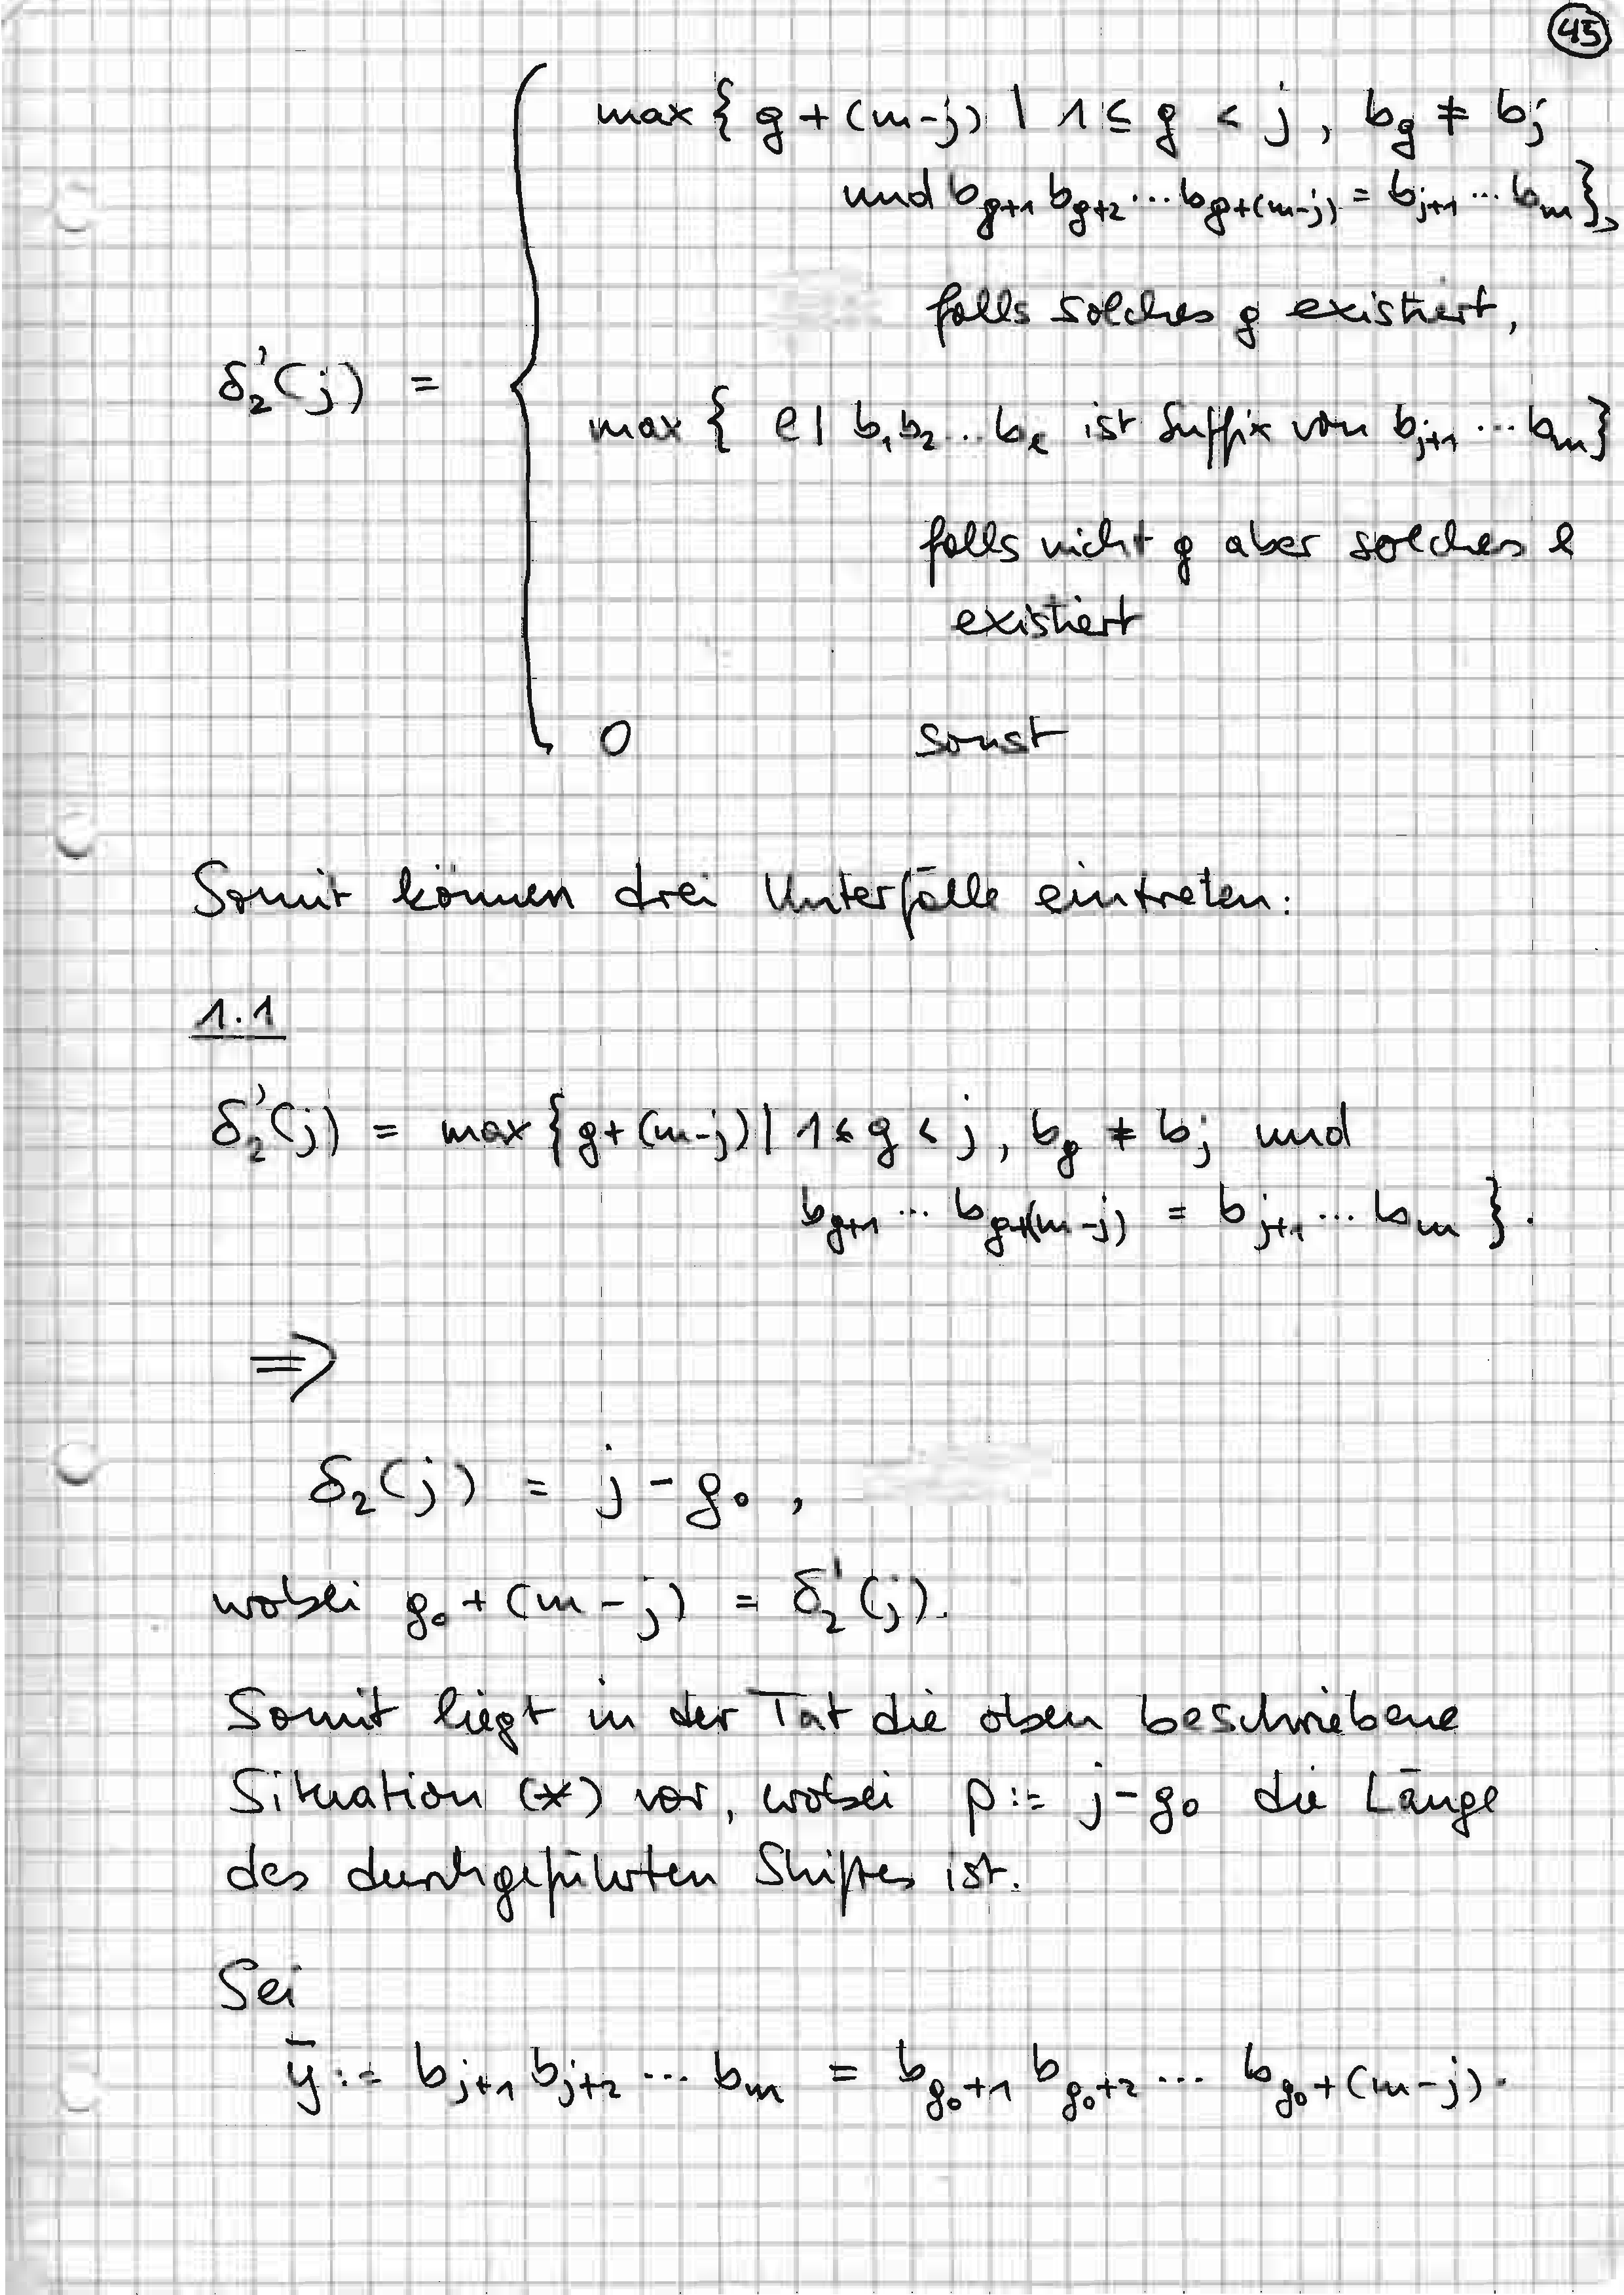 45
max { g + (m-j) | 1 ≤ g < j, b_g ≠ b_j
und b_{g+1} b_{g+2} ... b_{g+(m-j)} = b_{j+1} ... b_m },
falls solches g existiert,
δ_2'(j) =
max { l | b_1 b_2 ... b_l ist Suffix von b_{j+1} ... b_m }
falls nicht g aber solches l
existiert
0 sonst
Somit können drei Unterfälle eintreten:
1.1
δ_2'(j) = max { g + (m-j) | 1 ≤ g < j, b_g ≠ b_j und
b_{g+1} ... b_{g+(m-j)} = b_{j+1} ... b_m }.
⇒
δ_2(j) = j - g_0 ,
wobei g_0 + (m-j) = δ_2'(j).
Somit liegt in der Tat die oben beschriebene
Situation (*) vor, wobei p := j - g_0 die Länge
des durchgeführten Shiftes ist.
Sei
ȳ := b_{j+1} b_{j+2} ... b_m = b_{g_0+1} b_{g_0+2} ... b_{g_0+(m-j)}.